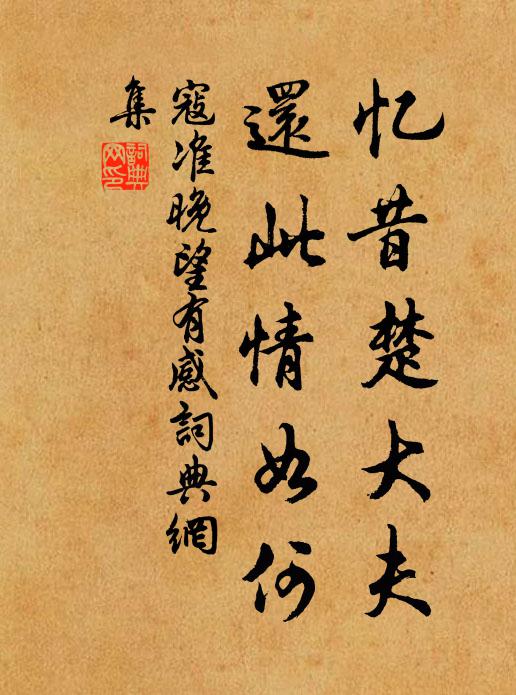 忆昔楚大夫
還此情如何
寇准晚望有感詞典網
集
詞典網印